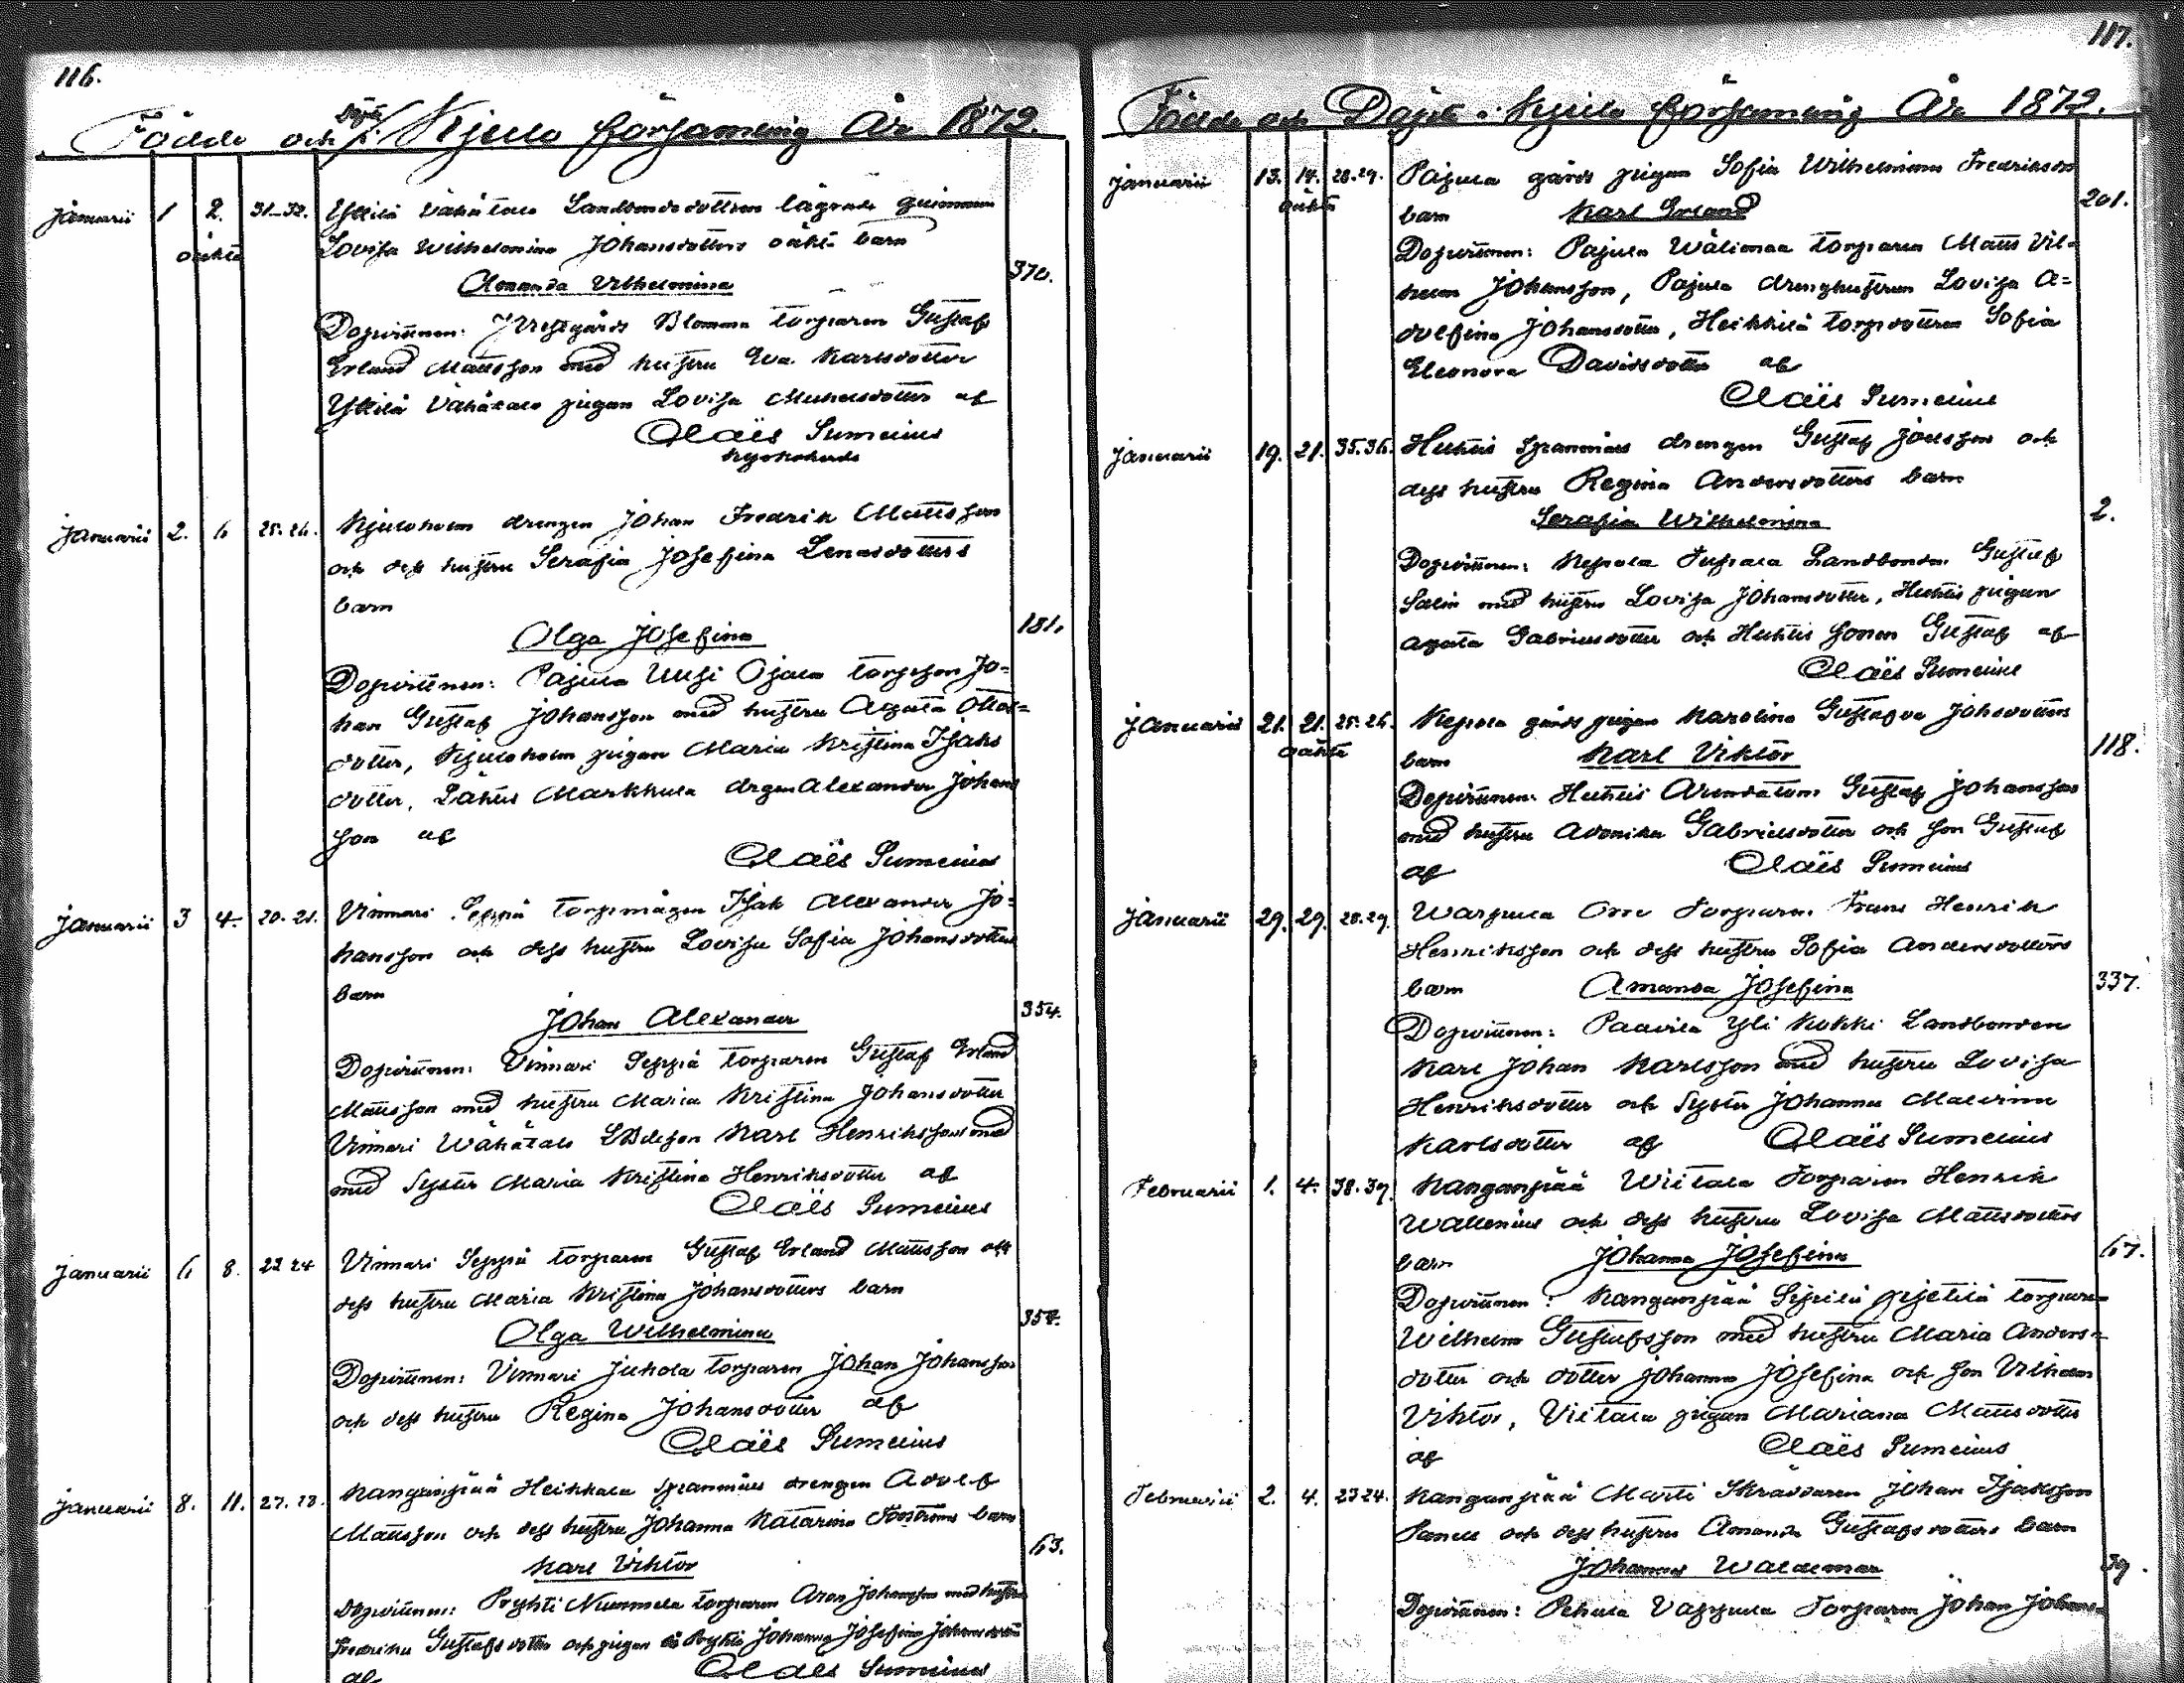 116.
Födde och Döpte i Kjulo församling År 1872.
Januarii 1 2. 31-32. Yttilä Vähätalo Landbondedottren lägrade qvinnan
oäkta Lovisa Wilhelmina Johansdotters oäkta barn
Amanda Vilhelmina 370.
Dopvittnen: Blomma torparen Gustaf
Erland Mattsson med hustru Eva Karlsdotter
Yttilä Vähätalo pigan Lovisa af
Claës Sumelius
Kyrkoherde
Januarii 2. 6 25-26. Kjuloholm drengen Johan Fredrik Mattsson
och dess hustru Serafia Josefina
barn
Olga Josefina 181.
Dopvittnen: Pajula Uusi Ojala torpson Jo=
han Gustaf Johansson med hustru Agata
dotter, Kjuloholm pigan Maria Kristina Isaks
dotter, Markkula drgen Alexander Johans
son af
Claës Sumelius
Januarii 3 4. 20-21. Vinnari Seppä torpmågen Isak Alexander Jo=
hansson och dess hustru Lovisa Sofia Johansdotters
barn
Johan Alexander 354.
Dopvittnen: Vinnari Seppä torparen Gustaf Erland
Mattsson med hustru Maria Kristina Johansdotter
Vinnari Wähätalo Karl Henriksson med
med Syster Maria Kristina Henriksdotter af
Claës Sumelius
Januarii 6 8. 23 24 Vinnari Seppä torparen Gustaf Erland Mattsson och
dess hustru Maria Kristina Johansdotters barn
Olga Wilhelmina 354.
Dopvittnen: Vinnari Juhola torparen Johan Johansson
och dess hustru Regina Johansdotter af
Claës Sumelius
Januarii 8. 11. 27. 28. Kanganpää Heikkala Spanmåls drengen Adolf
Mattsson och dess hustru Johanna Katarina barn
Karl Viktor 63.
Dopvittnen: Pryhti Nummela torparen Johansson med hustru
Fredrika Gustafsdotter och pigan Pryhti Johanna Josefina Johansdotter
af Claës Sumelius
117.
Födde och Döpte i Kjulo församling År 1872.
Januarii 13. 14. 28.29. Pajula gårds pigan Sofia Wilhelmina Fredriksdr
oäkta barn Karl Erland 201.
Dopvittnen: Pajula Wälimaa torparen Matts Vil=
helm Johansson, Pajula drenghustrun Lovisa A=
dolfina Johansdotter, Heikkilä torpdottren Sofia
Eleonora Davidsdotter af
Claës Sumelius
Januarii 19. 21. 35.36. Huhtis Spanmåls drengen Gustaf Joelsson och
dess hustru Regina Andersdotters barn
Serafia Wilhelmina 2.
Dopvittnen: Kepola Tupala Landbonden Gustaf
Salin med hustru Lovisa Johansdotter, Huhtis pigan
Agata Gabrielsdotter och Huhtis sonen Gustaf af
Claës Sumelius
Januarii 21. 21. 25.26. Kepola gårds pigan Karolina Gustafva Johsdotters
oäkta barn Karl Viktor 118.
Dopvittnen: Huhtis Arendatorn Gustaf Johansson
med hustru Gabrielsdotter och son Gustaf
af Claës Sumelius
Januarii 29. 29. 28.29. Warpula Orre Torparen Frans Henrik
Henriksson och dess hustru Sofia Andersdotters
barn Amanda Josefina 337.
Dopvittnen: Paavila Yli Kokki Landbonden
Karl Johan Karlsson med hustru Lovisa
Henriksdotter och Syster Johanna Malvina
Karlsdotter af Claës Sumelius
Februarii 1. 4. 38.39. Kanganpää Wiitala Torparen Henrik
Wallenius och dess hustru Lovisa Mattsdotters
barn Johanna Josefina 67.
Dopvittnen: Kanganpää torparen
Wilhelm Gustafsson med hustru Maria Anders=
dotter och dotter Johanna Josefina och son Vilhelm
Viktor, Viitala pigan Mariana Mattsdotter
af Claës Sumelius
Februarii 2. 4. 23 24. Kanganpää Martti Skräddaren Johan Isaksson
och dess hustru Amanda Gustafsdotters barn
Johannes Waldemar 39.
Dopvittnen: Vappula Torparen Johan Johans